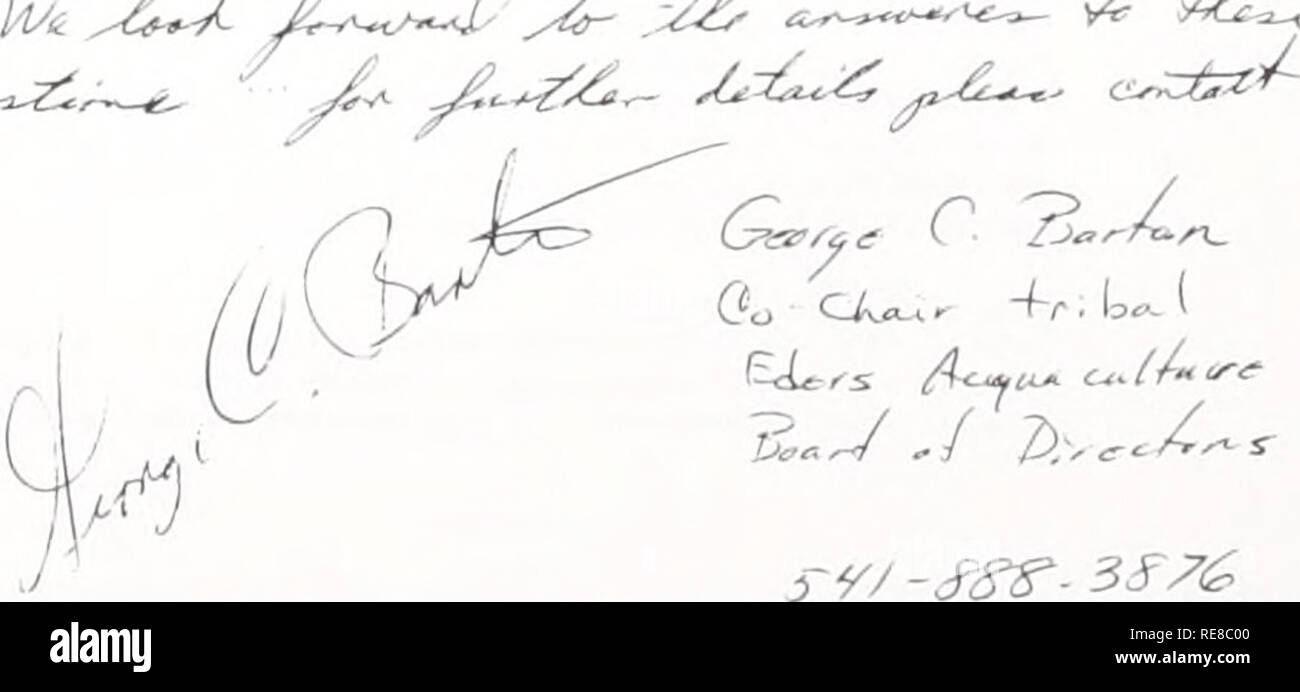 We look forward to the answeres to these
stions for further details pleas contatt
George C. Barton
George C. Bartan
Co-Chair tribal
Eders Acqua culture
Board of Directors
541-888-3876
alamy
Image ID: RE8C00
www.alamy.com